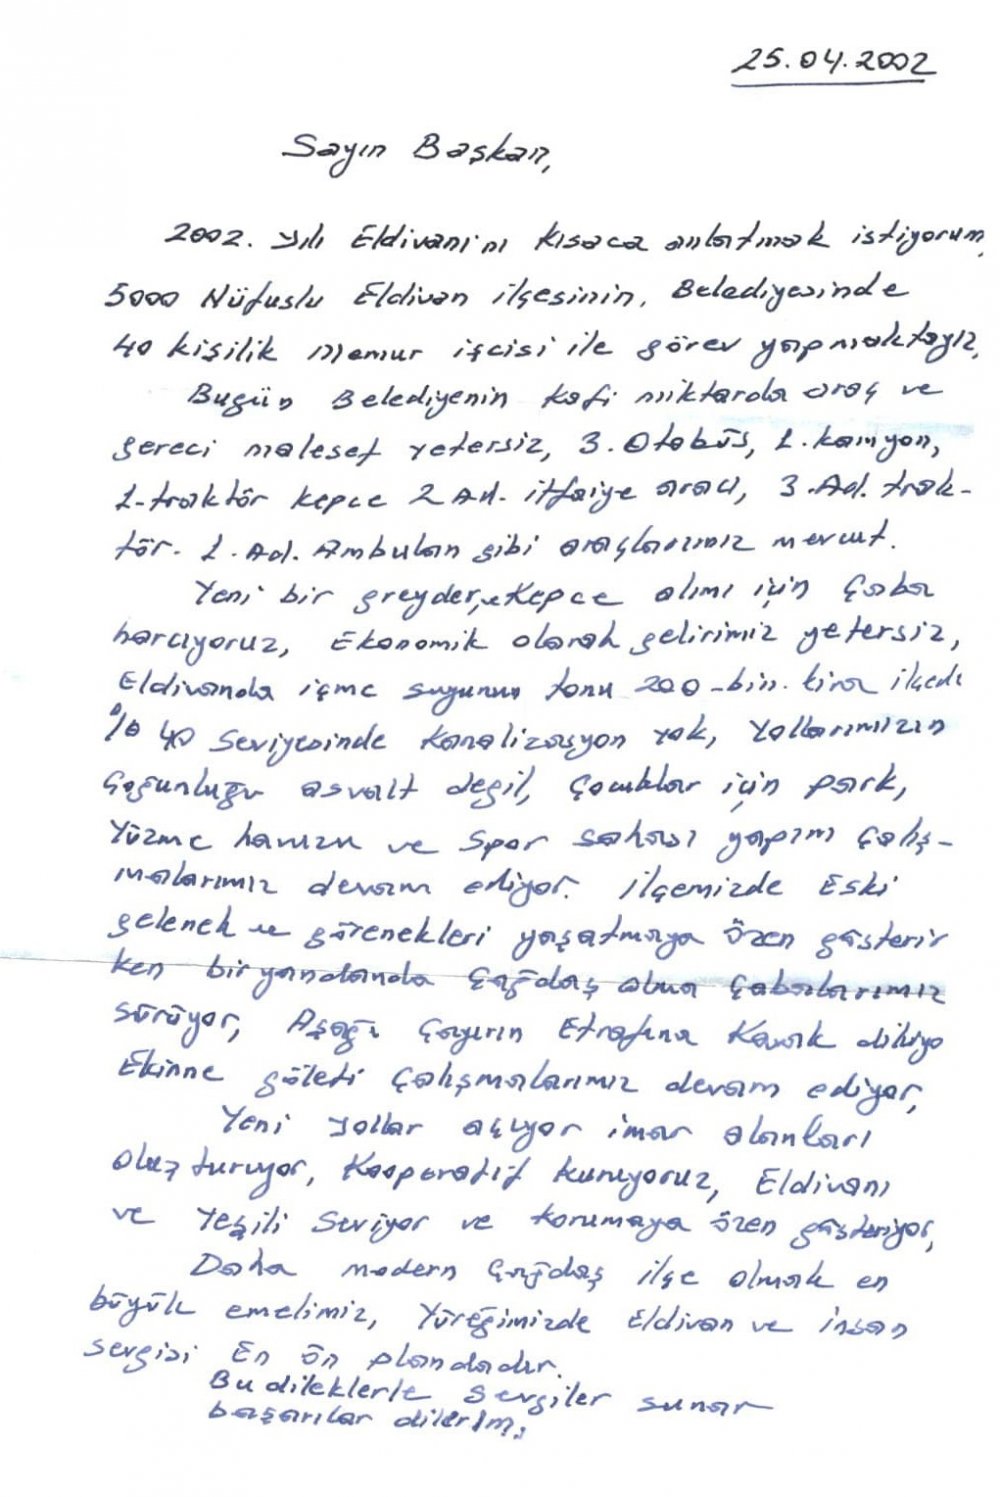 25.04.2002
Sayın Başkan,
2002. yılı Eldivanı'nı kısaca anlatmak istiyorum,
5000 Nüfuslu Eldivan ilçesinin, Belediyesinde
40 kişilik memur işcisi ile görev yapmaktayız,
Bugün Belediyenin kafi miktarda araç ve
gereci malesef yetersiz, 3. Otobüs, 1. kamyon,
1-traktör kepce 2 Ad. itfaiye aracı, 3.Ad. trak-
tör. 1. Ad. Ambulan gibi araçlarımız mevcut.
Yeni bir greyder, ve Kepce alımı için Çaba
harcıyoruz, Ekonomik olarak gelirimiz yetersiz,
Eldivanda içme suyunun tonu 200-bin. lira ilçede
% 40 Seviyesinde Kanalizasyon yok, Yollarımızın
Çoğunluğu asvalt değil, Çocuklar için park,
Yüzme havuzu ve Spor sahası yapımı Çalış-
malarımız devam ediyor. ilçemizde Eski
gelenek ve görenekleri yaşatmaya Özen gösterir
ken bir yandanda Çağdaş olma Çabalarımız
sürüyor, Aşağı Çayırın Etrafına Kavak dikiyo
Ekinne göleti Çalışmalarımız devam ediyor,
Yeni yollar açıyor imar alanları
oluşturuyor, Kooperatif kuruyoruz, Eldivanı
ve Yeşili Seviyor ve Korumaya özen gösteriyor,
Daha modern Çağdaş ilçe olmak en
büyük emelimiz, Yüreğimizde Eldivan ve insan
sevgisi En ön plandadır.
Bu dileklerle Sevgiler sunar
başarılar dilerim.